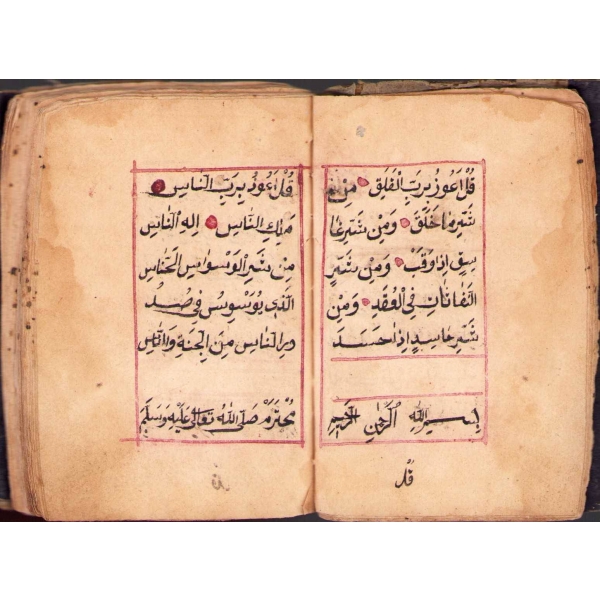 قُلْ اَعُوذُ بِرَبِّ الْفَلَقِ مِنْ
شَرِّ مَا خَلَقَ وَمِنْ شَرِّ غَا
سِقٍ اِذَا وَقَبَ وَمِنْ شَرِّ
النَّفَّاثَاتِ فِي الْعُقَدِ وَمِنْ
شَرِّ حَاسِدٍ اِذَا حَسَدَ
بِسْمِ اللّٰهِ الرَّحْمٰنِ الرَّحِيمِ
قُلْ
قُلْ اَعُوذُ بِرَبِّ النَّاسِ
مَلِكِ النَّاسِ اِلٰهِ النَّاسِ
مِنْ شَرِّ الْوَسْوَاسِ الْخَنَّاسِ
الَّذِي يُوَسْوِسُ فِي صُدُ
ورِ النَّاسِ مِنَ الْجِنَّةِ وَالنَّاسِ
صَلَّى اللّٰهُ تَعَالٰى عَلَيْهِ وَسَلَّمَ